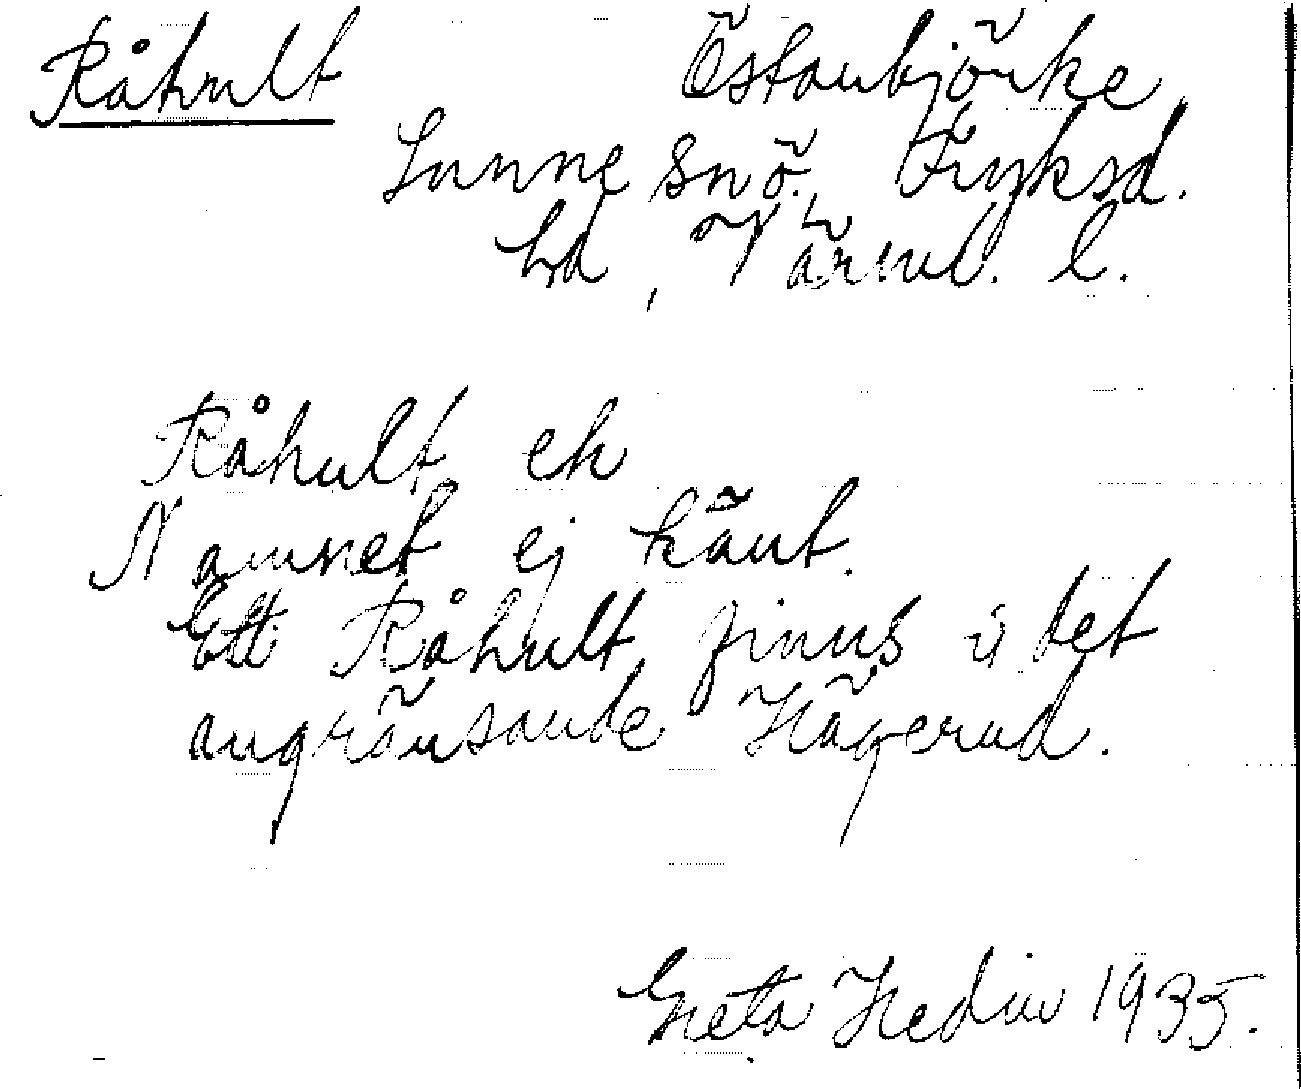 Råhult Östanbjörke
Sunne snö. Fryksd.
hd, Värml. l.
Råhult ek
Namnet ej känt.
Ett Råhult finns i det
angränsande Hågerud.
Greta Hedin 1935.